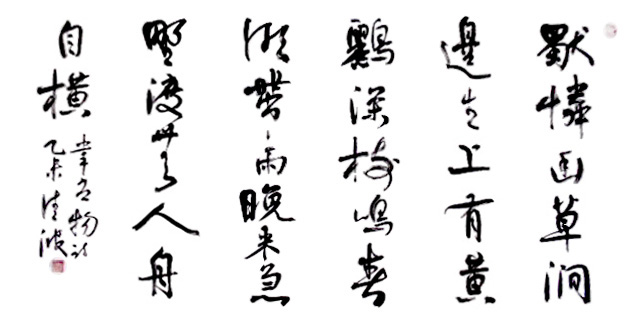 獨憐幽草澗
邊生上有黃
鸝深樹鳴春
潮帶雨晚來急
野渡無人舟
自橫
韋應物詩
乙未清波